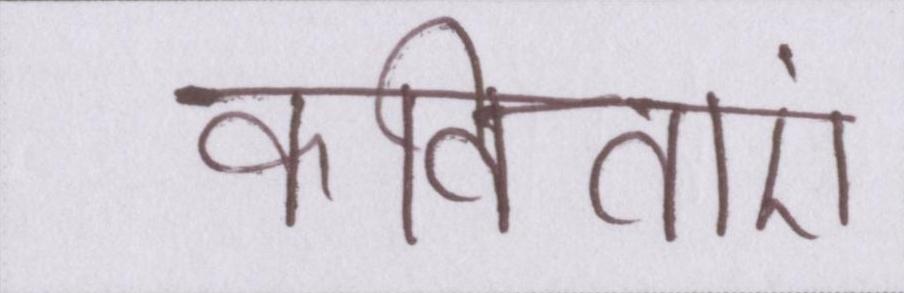 कविताएं